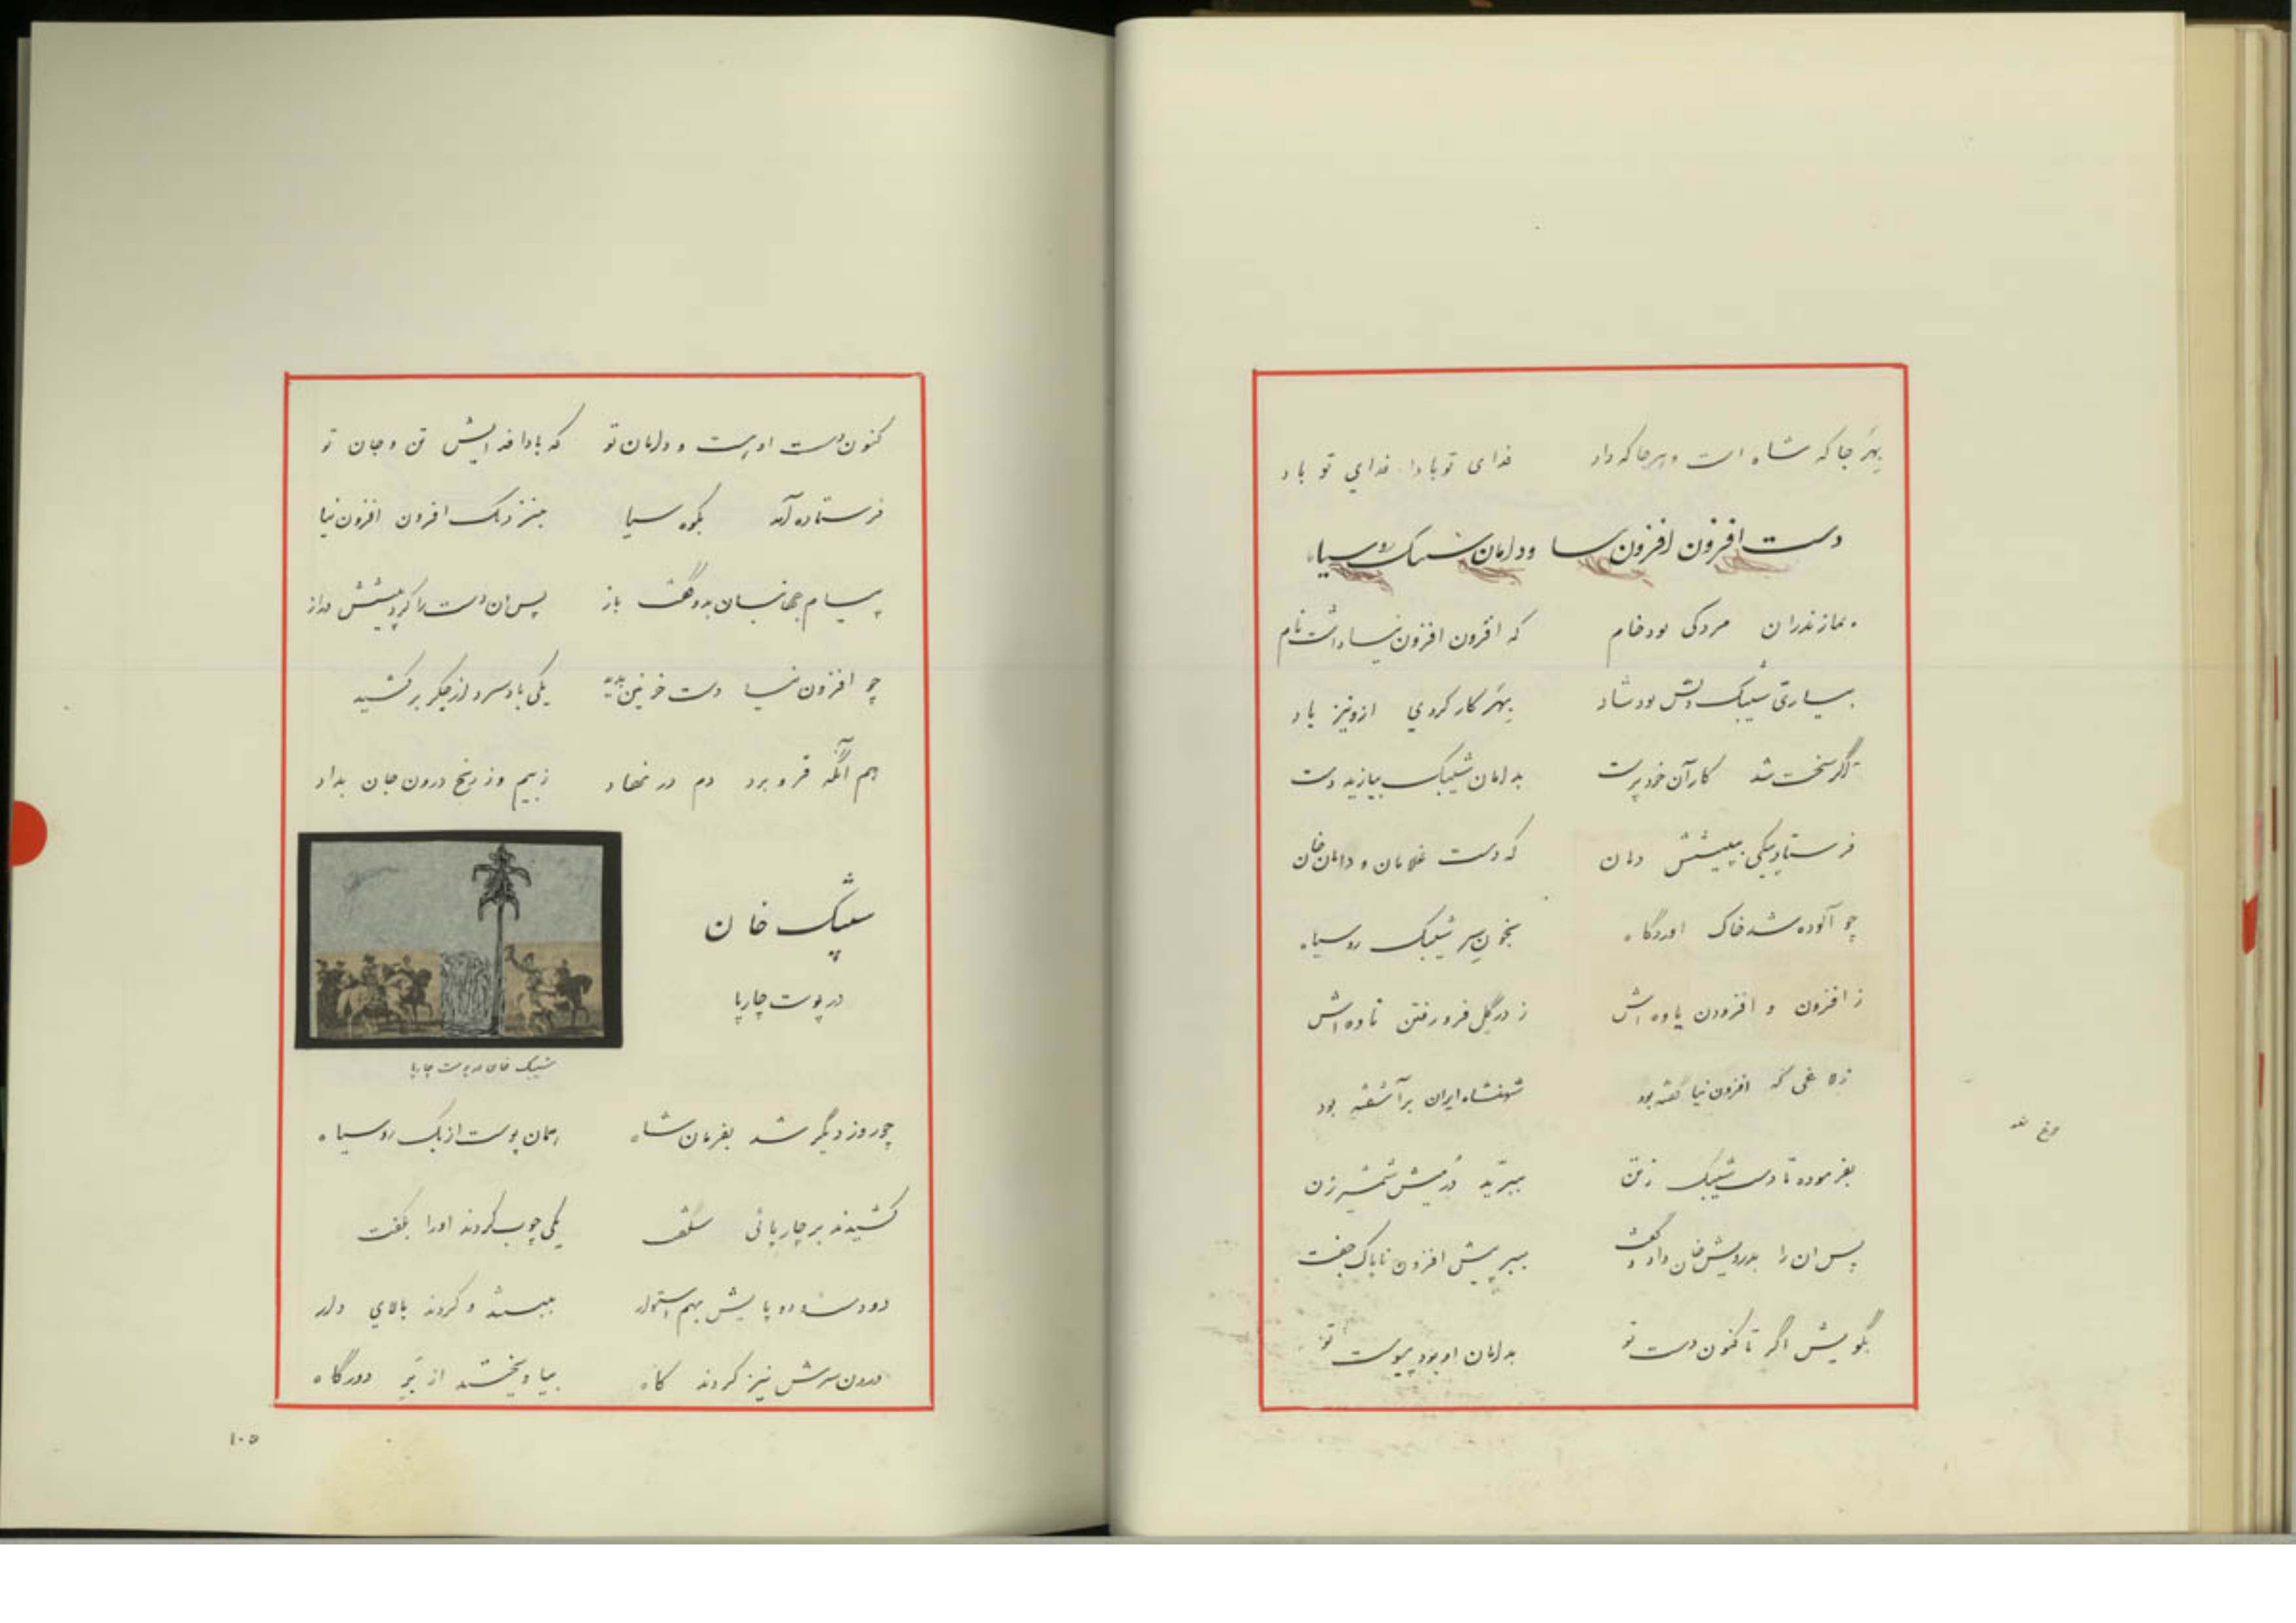 بهر جا که شاه است و هر جا که داد فدای تو بادا فدای تو باد
دست افزون افزون سا و دامان شیبک روسیاه
بمازندران مردکی بود خام که افزون افزون نیا داشت نام
بیاری شیبک دلش بود شاد بهر کار کردی ازو نیز یاد
اگر سخت شد کار آن خودپرست بدامان شیبک بیازید دست
فرستاد پیکی بپیشش دمان که دست غلامان و دامان خان
چو آلوده شد خاک اوردگاه بخون سر شیبک روسیاه
ز افزون و افزودن یاوه اش ز در گل فرو رفتن تاوه اش
که افزون نیا گفته بود شهنشاه ایران برآشفته بود
بفرموده تا دست شیبک ز تن ببرید دژمیش شمشیرزن
پس ان را بدرویش خان داد و گفت ببر پیش افزون ناپاک جفت
بگویش اگر تا کنون دست تو بدامان او بود پیوست تو
کنون دست اویست و دامان تو که بادا فدایش تن و جان تو
فرستاده آمد بکوه سیا بنزدیک افزون افزون نیا
پیام جهانبان بدو گفت باز پس ان دست را کرد پیشش دراز
چو افزون نیا دست خونین بدید یکی باد سرد از جگر برکشید
هم آنگه فرو برد دم در نهاد ز بیم وز رنج درون جان بداد
شیبک خان
در پوست چارپا
شیبک خان در پوست چارپا
چو روز دیگر شد بفرمان شاه همان پوست ازبک روسیاه
کشیدند بر چارپائی شگفت یکی چوب کردند اورا بکفت
دو دست و دو پایش بهم استوار ببستند و کردند بالای دار
درون سرش نیز کردند کاه بیاویختند از بر دورگاه
۱۰۵